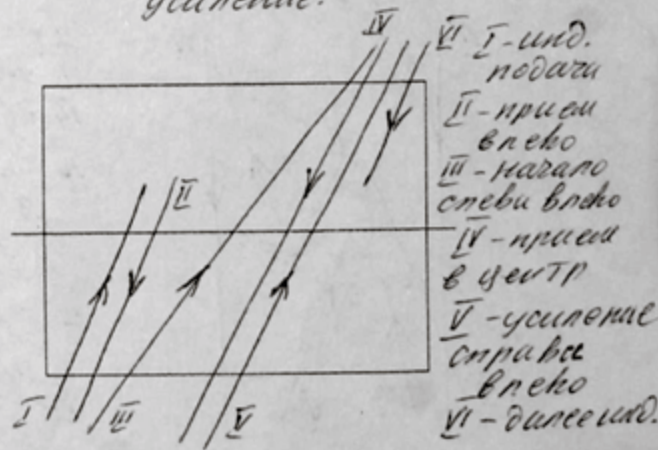 усиление.
IV
VI
I - инд.
подачи
II - прием
влево
II
III - начало
слева влево
IV - прием
в центр
V - усиление
справа
влево
VI - далее инд.
I
III
V